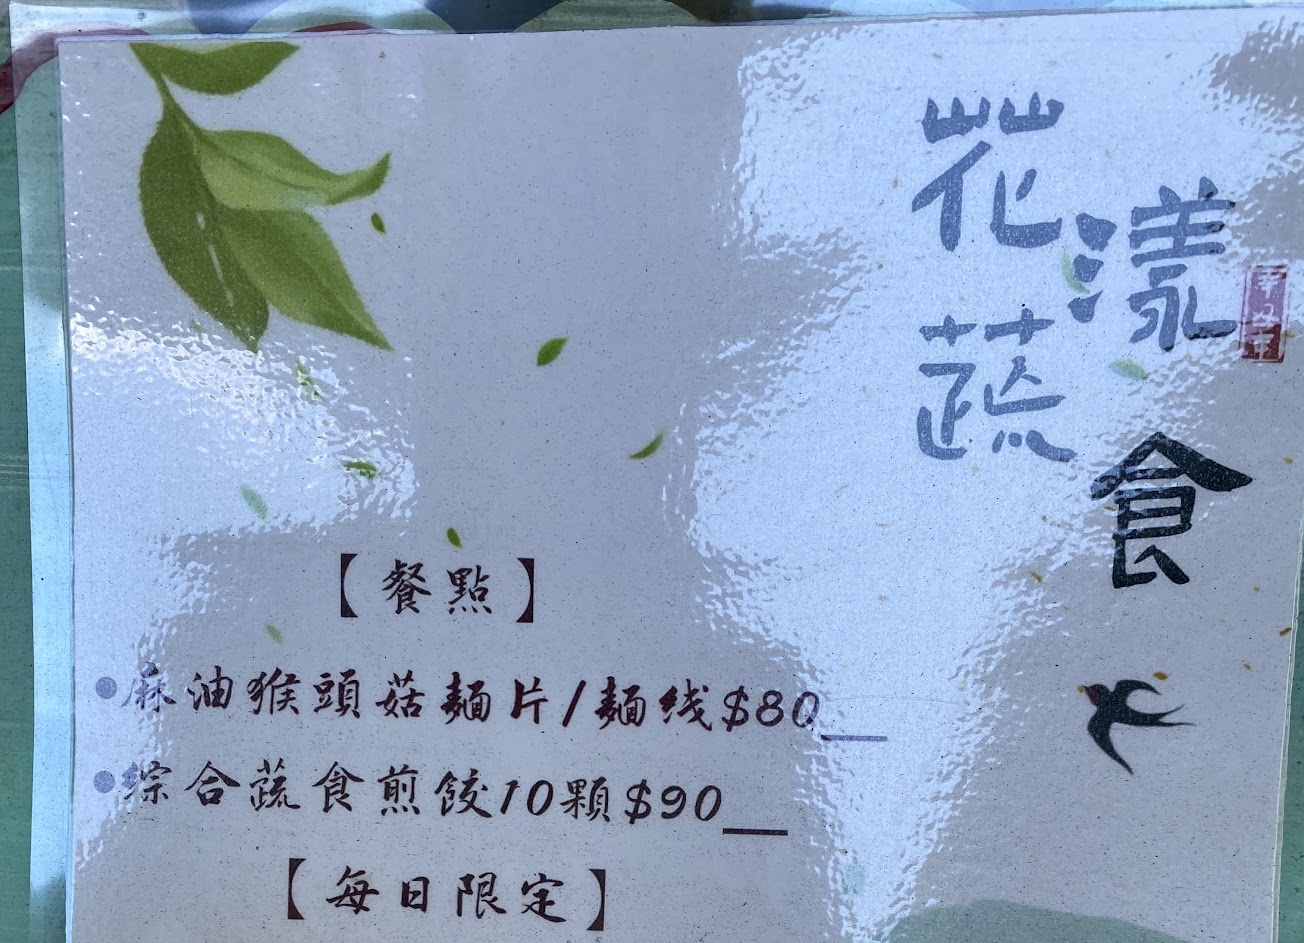 花漾
蔬食
【餐點】
●麻油猴頭菇麵片/麵线$80__
●綜合蔬食煎餃10顆$90__
【每日限定】